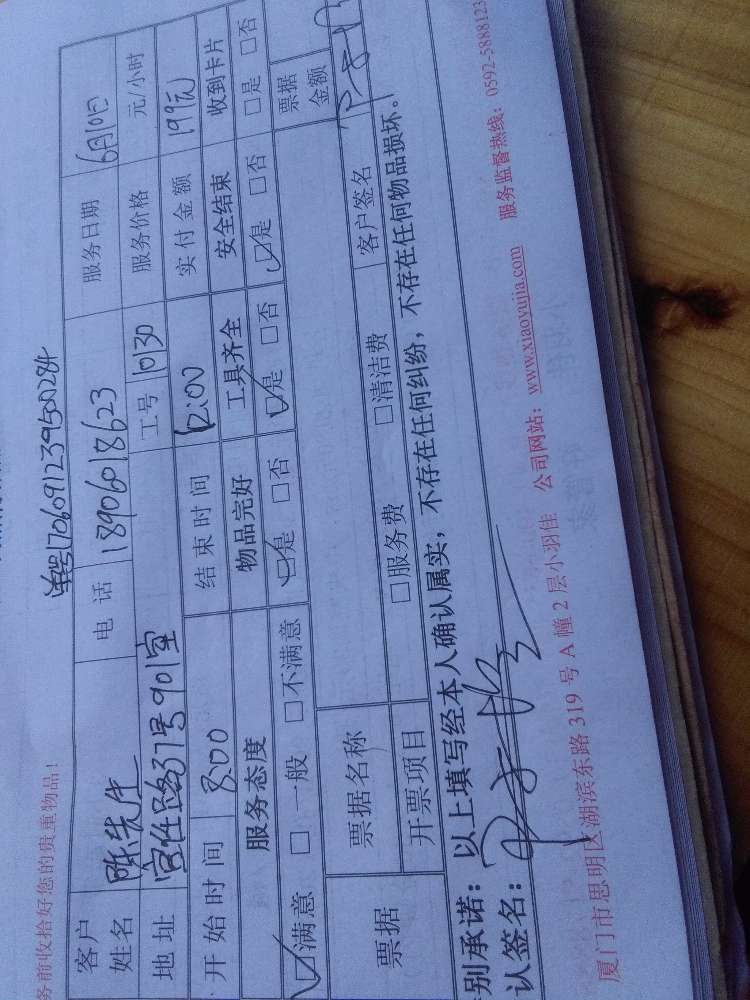 务前收拾好您的贵重物品！
单号170609123950284
客户姓名 陈先生 电话 18906018623 服务日期 6月10日
地址 宜任路37号901室 工号 10130 服务价格 元/小时
开始时间 8:00 结束时间 12:00 实付金额 199元
服务态度 物品完好 工具齐全 安全结束 收到卡片
☑满意 □一般 □不满意 ☑是 □否 ☑是 □否 ☑是 □否 □是 □否
票据 票据名称 票据金额
开票项目 □服务费 □清洁费 客户签名
别承诺：以上填写经本人确认属实，不存在任何纠纷，不存在任何物品损坏。
认签名：
厦门市思明区湖滨东路 319 号 A 幢 2 层小羽佳 公司网站：www.xiaoyujia.com 服务监督热线：0592-5888123